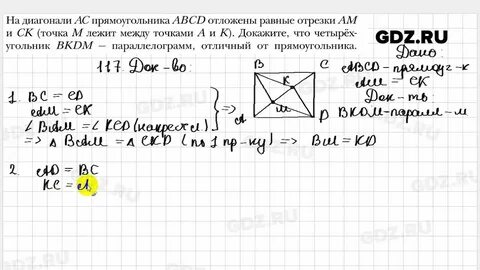 На диагонали AC прямоугольника ABCD отложены равные отрезки AM
и CK (точка M лежит между точками A и K). Докажите, что четырёх-
угольник BKDM – параллелограмм, отличный от прямоугольника.
GDZ.RU
117. Док-во:
Дано:
ABCD-прямоуг-к
AM = CK
Док-ть:
BKDM-парал-м
B
C
K
M
A
D
1. BC = CD
AM = CK
∠BAM = ∠KCD (накрест л)
=> 
=> △BAM = △CKD (по 1 пр-ку) => BM = KD
2. AD = BC
KC = A
GDZ.RU